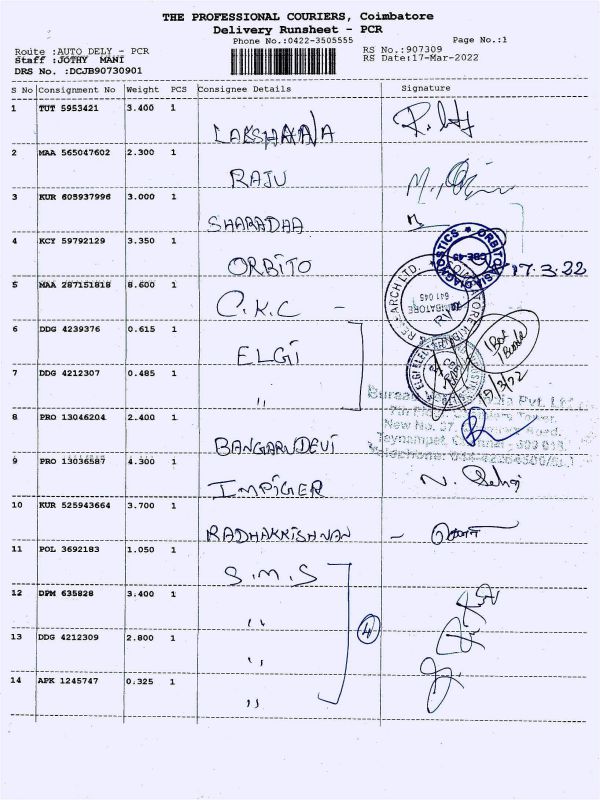 THE PROFESSIONAL COURIERS, Coimbatore
Delivery Runsheet - PCR
Phone No.:0422-3505555
Page No.:1
Route :AUTO DELY - PCR
Staff :JOTHY MANI
DRS No. :DCJB90730901
RS No.:907309
RS Date:17-Mar-2022
S No Consignment No Weight PCS Consignee Details Signature
1 TUT 5953421 3.400 1
2 MAA 565047602 2.300 1 RAJU
3 KUR 605937996 3.000 1 SHARADHA
4 KCY 59792129 3.350 1 ORBITO 17.3.22
5 MAA 287151818 8.600 1 C.K.C -
6 DDG 4239376 0.615 1 ELGi
7 DDG 4212307 0.485 1 ,,
8 PRO 13046204 2.400 1 BANGARUDEVI
9 PRO 13036587 4.300 1 IMPIGER
10 KUR 525943664 3.700 1 RADHAKRISHNAN -
11 POL 3692183 1.050 1 S.M.S
12 DPM 635828 3.400 1 ,,
13 DDG 4212309 2.800 1 ,,
14 APK 1245747 0.325 1 ,,
4